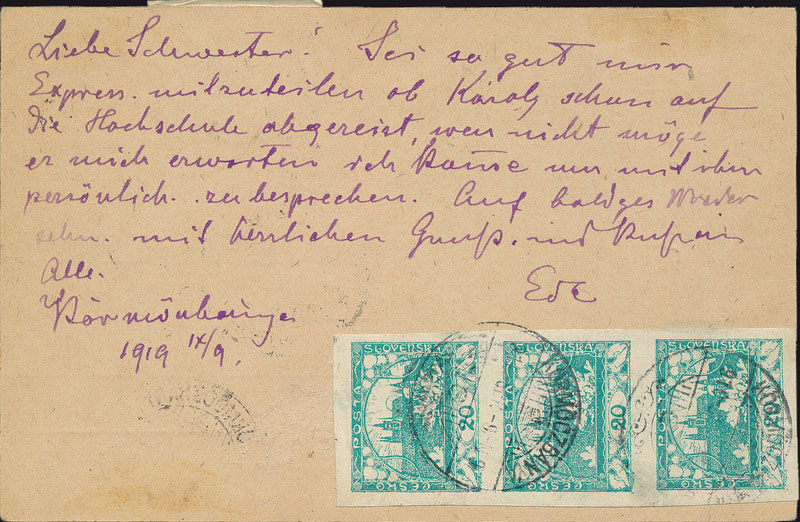 Liebe Schwester! Sei so gut mir
Express. mitzuteilen ob Károly schon auf
die Hochschule abgereist, wen nicht möge
er mich erwarten ich komme um mit ihm
persönlich. zu besprechen. Auf baldges Wieder
sehn. mit herrlichen Gruß. und Kußen
Alle.
Ede
Körmöcbánya
1919 IX/9.
SLOVENSKA
POSTA
ČESKO
20
SLOVENSKA
POSTA
ČESKO
20
SLOVENSKA
POSTA
ČESKO
20
KÖRMÖCZBÁNYA